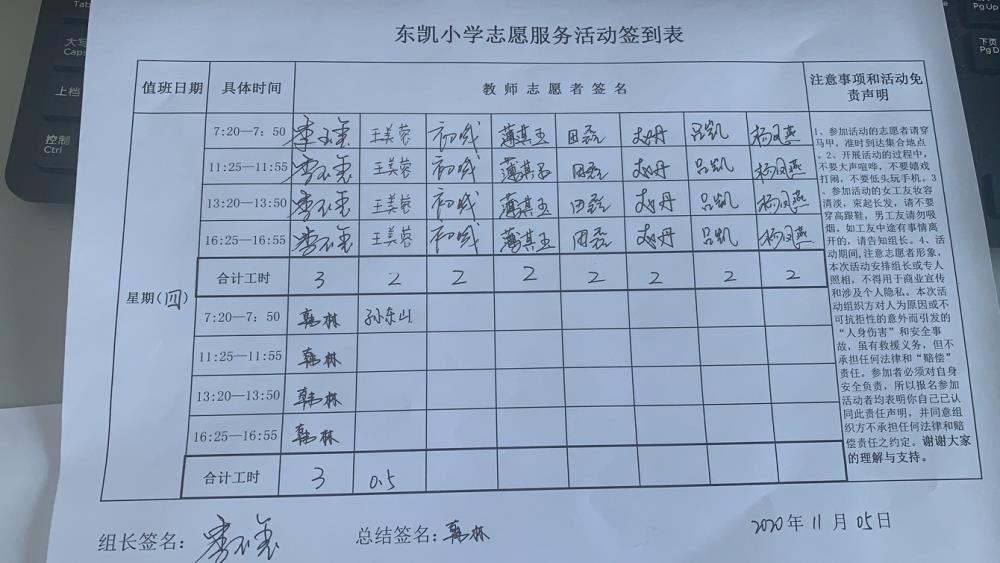 东凯小学志愿服务活动签到表
值班日期 具体时间 教师志愿者签名 注意事项和活动免责声明
星期(四)
7:20—7:50 王美蓉 初 薄其玉 田磊 赵丹 吕凯 杨凤燕
11:25—11:55 王美蓉 初 薄其玉 田磊 赵丹 吕凯 杨凤燕
13:20—13:50 王美蓉 初 薄其玉 田磊 赵丹 吕凯 杨凤燕
16:25—16:55 王美蓉 初 薄其玉 田磊 赵丹 吕凯 杨凤燕
合计工时 3 2 2 2 2 2 2 2
7:20—7:50 韩林 孙东山
11:25—11:55 韩林
13:20—13:50 韩林
16:25—16:55 韩林
合计工时 3 0.5
1、参加活动的志愿者请穿
马甲，准时到达集合地点
。2、开展活动的过程中，
不要大声喧哗，不要嬉戏
打闹，不要低头玩手机。3
、参加活动的女工友妆容
清淡，束起长发，请不要
穿高跟鞋，男工友请勿吸
烟。如工友中途有事情离
开的，请告知组长。4、活
动期间,注意志愿者形象，
本次活动安排组长或专人
照相，不得用于商业宣传
和涉及个人隐私。本次活
动组织方对人为原因或不
可抗拒性的意外而引发的
“人身伤害”和安全事
故，虽有救援义务，但不
承担任何法律和“赔偿”
责任。参加者必须对自身
安全负责，所以报名参加
活动者均表明你自己已认
同此责任声明，并同意组
织方不承担任何法律和赔
偿责任之约定。谢谢大家
的理解与支持。
组长签名： 总结签名：韩林 2020年11月05日
大写
Caps
上档
控制
Ctrl
Tab
PgUp
下页
PgD